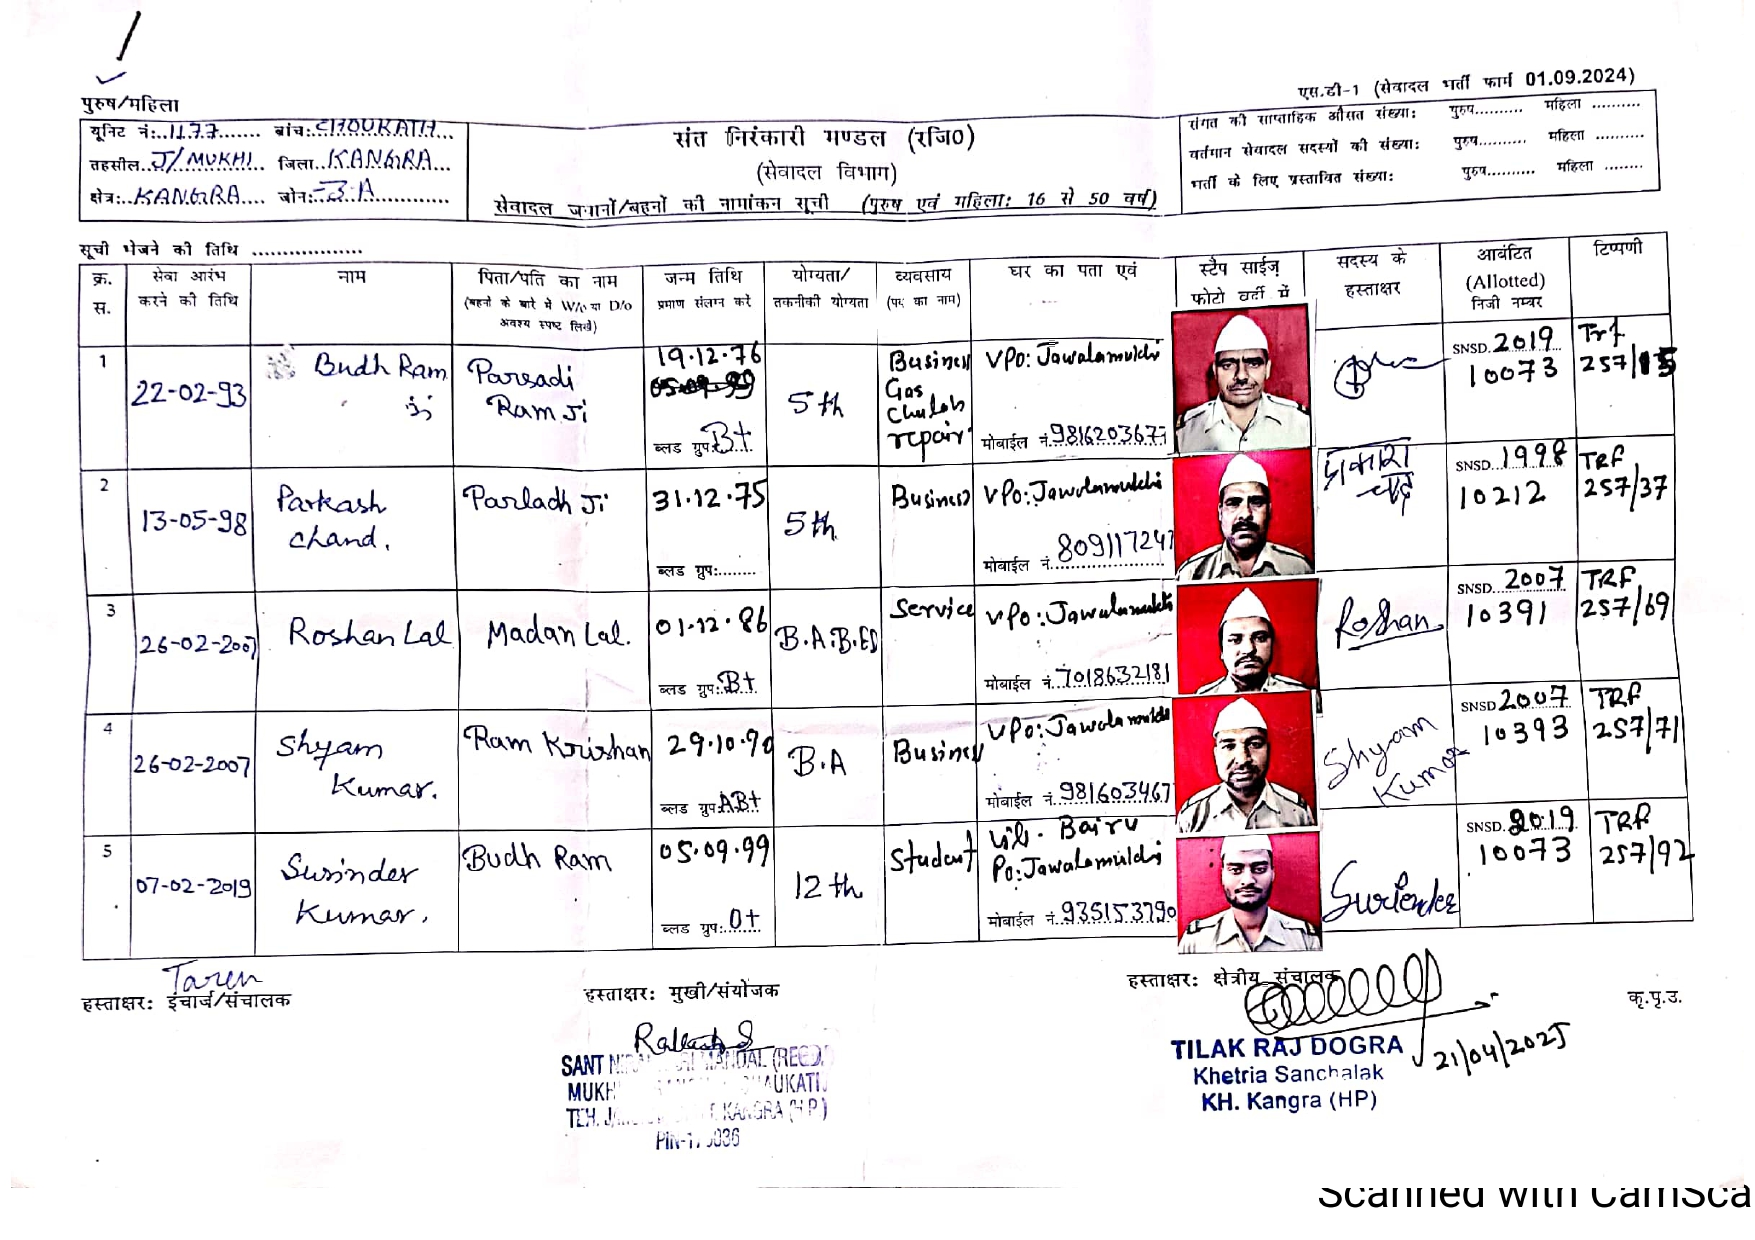 पुरुष/महिला
एस.डी-1 (सेवादल भर्ती फार्म 01.09.2024)
यूनिट नं:..1177....... ब्रांच:.CHOUKATH...
तहसील..J/MUKHI.. जिला..KANGRA....
क्षेत्र:..KANGRA.... जोन:-3-A.............
संत निरंकारी मण्डल (रजि0)
(सेवादल विभाग)
सेवादल जवानों/बहनों की नामांकन सूची (पुरुष एवं महिला: 16 से 50 वर्ष)
संगत की साप्ताहिक औसत संख्या: पुरुष.......... महिला ..........
वर्तमान सेवादल सदस्यों की संख्या: पुरुष.......... महिला ..........
भर्ती के लिए प्रस्तावित संख्या: पुरुष.......... महिला ........
सूची भेजने की तिथि ..................
क्र. स.
सेवा आरंभ करने की तिथि
नाम
पिता/पति का नाम
(बहनों के बारे में W/o या D/o अवश्य स्पष्ट लिखें)
जन्म तिथि
प्रमाण संलग्न करे
योग्यता/
तकनीकी योग्यता
व्यवसाय
(पद का नाम)
घर का पता एवं
स्टैंप साईज़
फोटो वर्दी में
सदस्य के
हस्ताक्षर
आबंटित
(Allotted)
निजी नम्बर
टिप्पणी
1
22-02-93
Budh Ram
Ji
Parsadi
Ram Ji
19.12.76
05.09.99
ब्लड ग्रुप:B+
5th
Business
Gas
Chulah
repair
VPO: Jawalamukhi
मोबाईल नं.9816203677
SNSD.2019
10073
Trf
257/15
2
13-05-98
Parkash
Chand.
Parladh Ji
31.12.75
ब्लड ग्रुप:........
5th
Business
VPO: Jawalamukhi
मोबाईल नं.809117247
प्रकाश
चंद
SNSD..1998
10212
TRF
257/37
3
26-02-2007
Roshan Lal
Madan Lal.
01.12.86
ब्लड ग्रुप:.B+
B.A.B.ED
Service
VPO: Jawalamukhi
मोबाईल नं.7018632181
Roshan
SNSD. 2007
10391
TRF
257/69
4
26-02-2007
Shyam
Kumar.
Ram Krishan
29.10.90
ब्लड ग्रुप.AB+
B.A
Business
VPO: Jawalamukhi
मोबाईल नं.981603467
Shyam
Kumar
SNSD 2007
10393
TRF
257/71
5
07-02-2019
Surinder
Kumar.
Budh Ram
05.09.99
ब्लड ग्रुप:..O+
12th
Student
Vill- Bairu
Po: Jawalamukhi
मोबाईल नं.935153790
Surinder
SNSD. 2019
10073
TRF
257/92
Taren
हस्ताक्षर: इंचार्ज/संचालक
हस्ताक्षर: मुखी/संयोजक
SANT NIRANKARI MANDAL (REGD.)
KANGRA (H.P.)
हस्ताक्षर: क्षेत्रीय संचालक
TILAK RAJ DOGRA
Khetria Sanchalak
KH. Kangra (HP)
21/04/2025
कृ.पृ.उ.
Scanned with CamSca